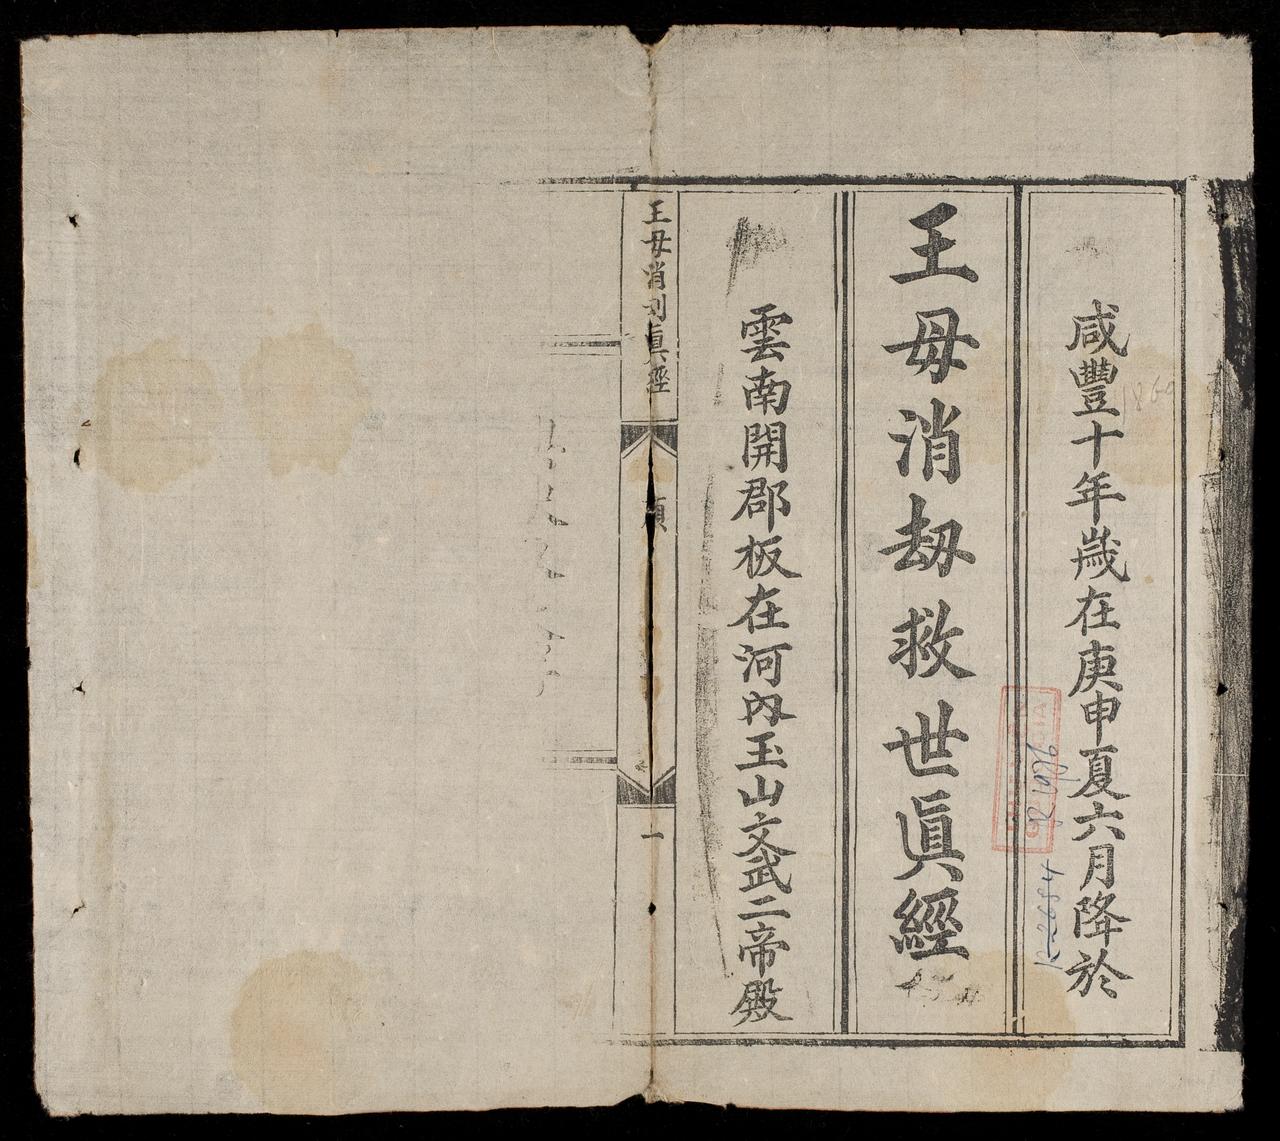 咸豐十年歲在庚申夏六月降於
王母消劫救世眞經
雲南開郡板在河內玉山文武二帝殿
王母消刦眞經
一
1860